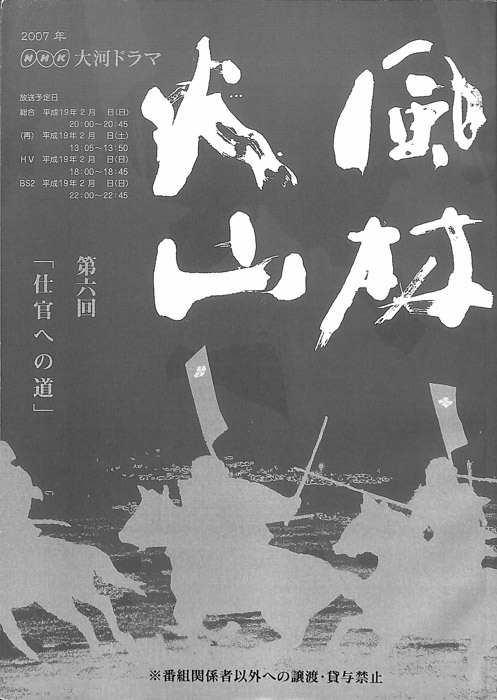 2007年
NHK 大河ドラマ
風林
火山
放送予定日
総合 平成19年2月 日(日)
20:00〜20:45
(再) 平成19年2月 日(土)
13:05〜13:50
HV 平成19年2月 日(日)
18:00〜18:45
BS2 平成19年2月 日(日)
22:00〜22:45
第六回
「仕官への道」
※番組関係者以外への譲渡・貸与禁止